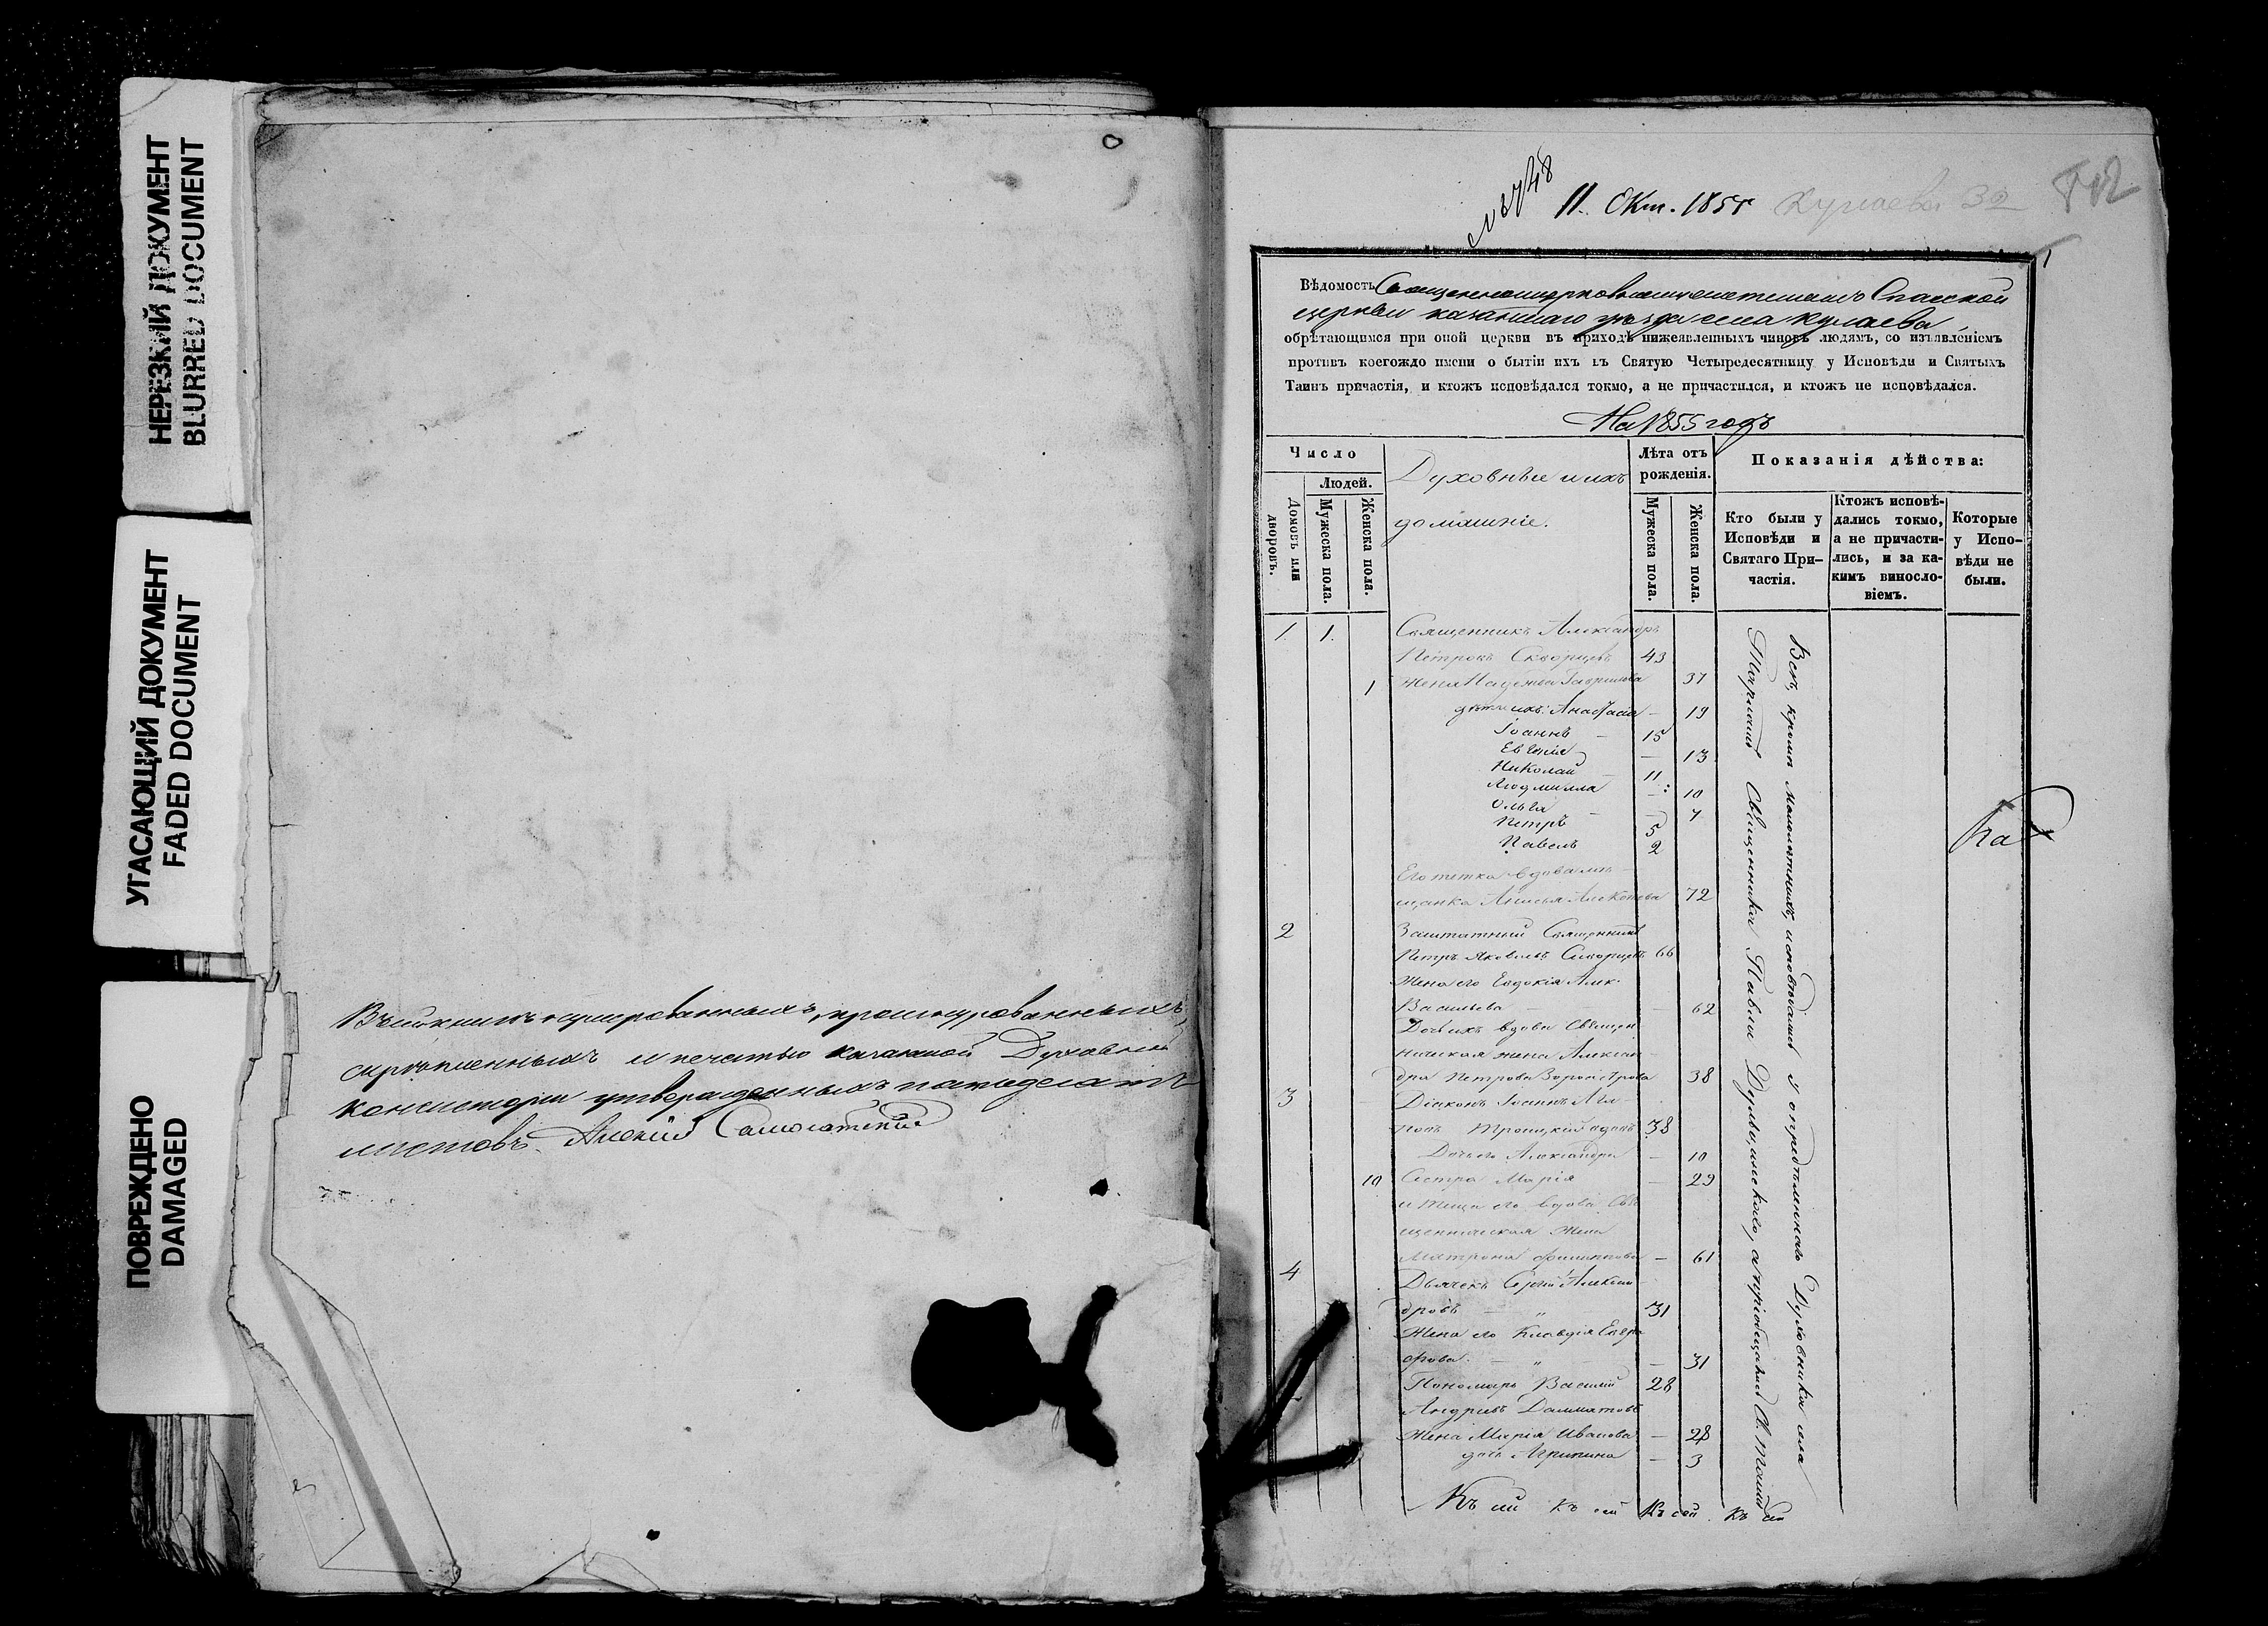 НЕРЕЗКИЙ ДОКУМЕНТ
BLURRED DOCUMENT
УГАСАЮЩИЙ ДОКУМЕНТ
FADED DOCUMENT
ПОВРЕЖДЕНО
DAMAGED
прошнурованныхъ,
скрепленныхъ и печатью казанской Духовной
Консисторіи утвержденныхъ пятьдесятъ
листовъ. Алексій
11. Окт. 1855 Кулаева 32
Вѣдомость Спасской
церкви казанскаго уѣзда села Кулаева,
обрѣтающимся при оной церкви въ приходѣ нижеявленныхъ чиновъ людямъ, со изъявленіемъ
противъ коегождо имени о бытіи ихъ въ Святую Четыредесятницу у Исповѣди и Святыхъ
Таинъ причастія, и ктожъ исповѣдался токмо, а не причастился, и ктожъ не исповѣдался.
На 1855 годъ
Число
Людей.
Домовъ или дворовъ.
Мужеска пола.
Женска пола.
Духовные и ихъ
домашніе.
Лѣта отъ рожденія.
Мужеска пола.
Женска пола.
Показанія дѣйства:
Кто были у Исповѣди и Святаго При-частія.
Ктожъ исповѣ-дались токмо, а не причасти-лись, и за ка-кимъ винословіемъ.
Которые у Испо-вѣди не были.
1. 1. Священникъ Александръ
Петровъ Скворцовъ 43
1 Жена Надежда Гаврилова 37
дѣти ихъ: Анастасія — 19
Іоаннъ — 15
Евгенія — 13
Николай — 11
Людмилла — 10
Ольга — 7
Петръ 5
Павелъ 2
Его тетка вдова мѣ-
щанка Анисья Алексѣева 72
2 Заштатный Священникъ
Петръ Яковлевъ Скворцовъ 66
Жена его Евдокія Алек.
Васильева — 62
Дочь ихъ вдова Священ
ническая жена Алексан
дра Петрова 38
3 Діаконъ Іоаннъ
Троицкій вдовъ 38
Дочь его Александра — 10
10 Сестра Марія — 29
и теща его вдова Свя
щенническая жена
Матрона Филиппова — 61
4 Дьячекъ Сергій Алексан
дровъ — " 31
Жена его Клавдія Евгра
фова. — " — 31
Пономарь Василій 28
Андреевъ Далматовъ
Жена Марія Иванова — 28
дочь Агрипина — 3
Всѣ, кромѣ малолѣтнихъ, исповѣдались у опредѣленнаго Духовника села
Священника Павла
Къ сей Къ сей Къ сей Къ сей